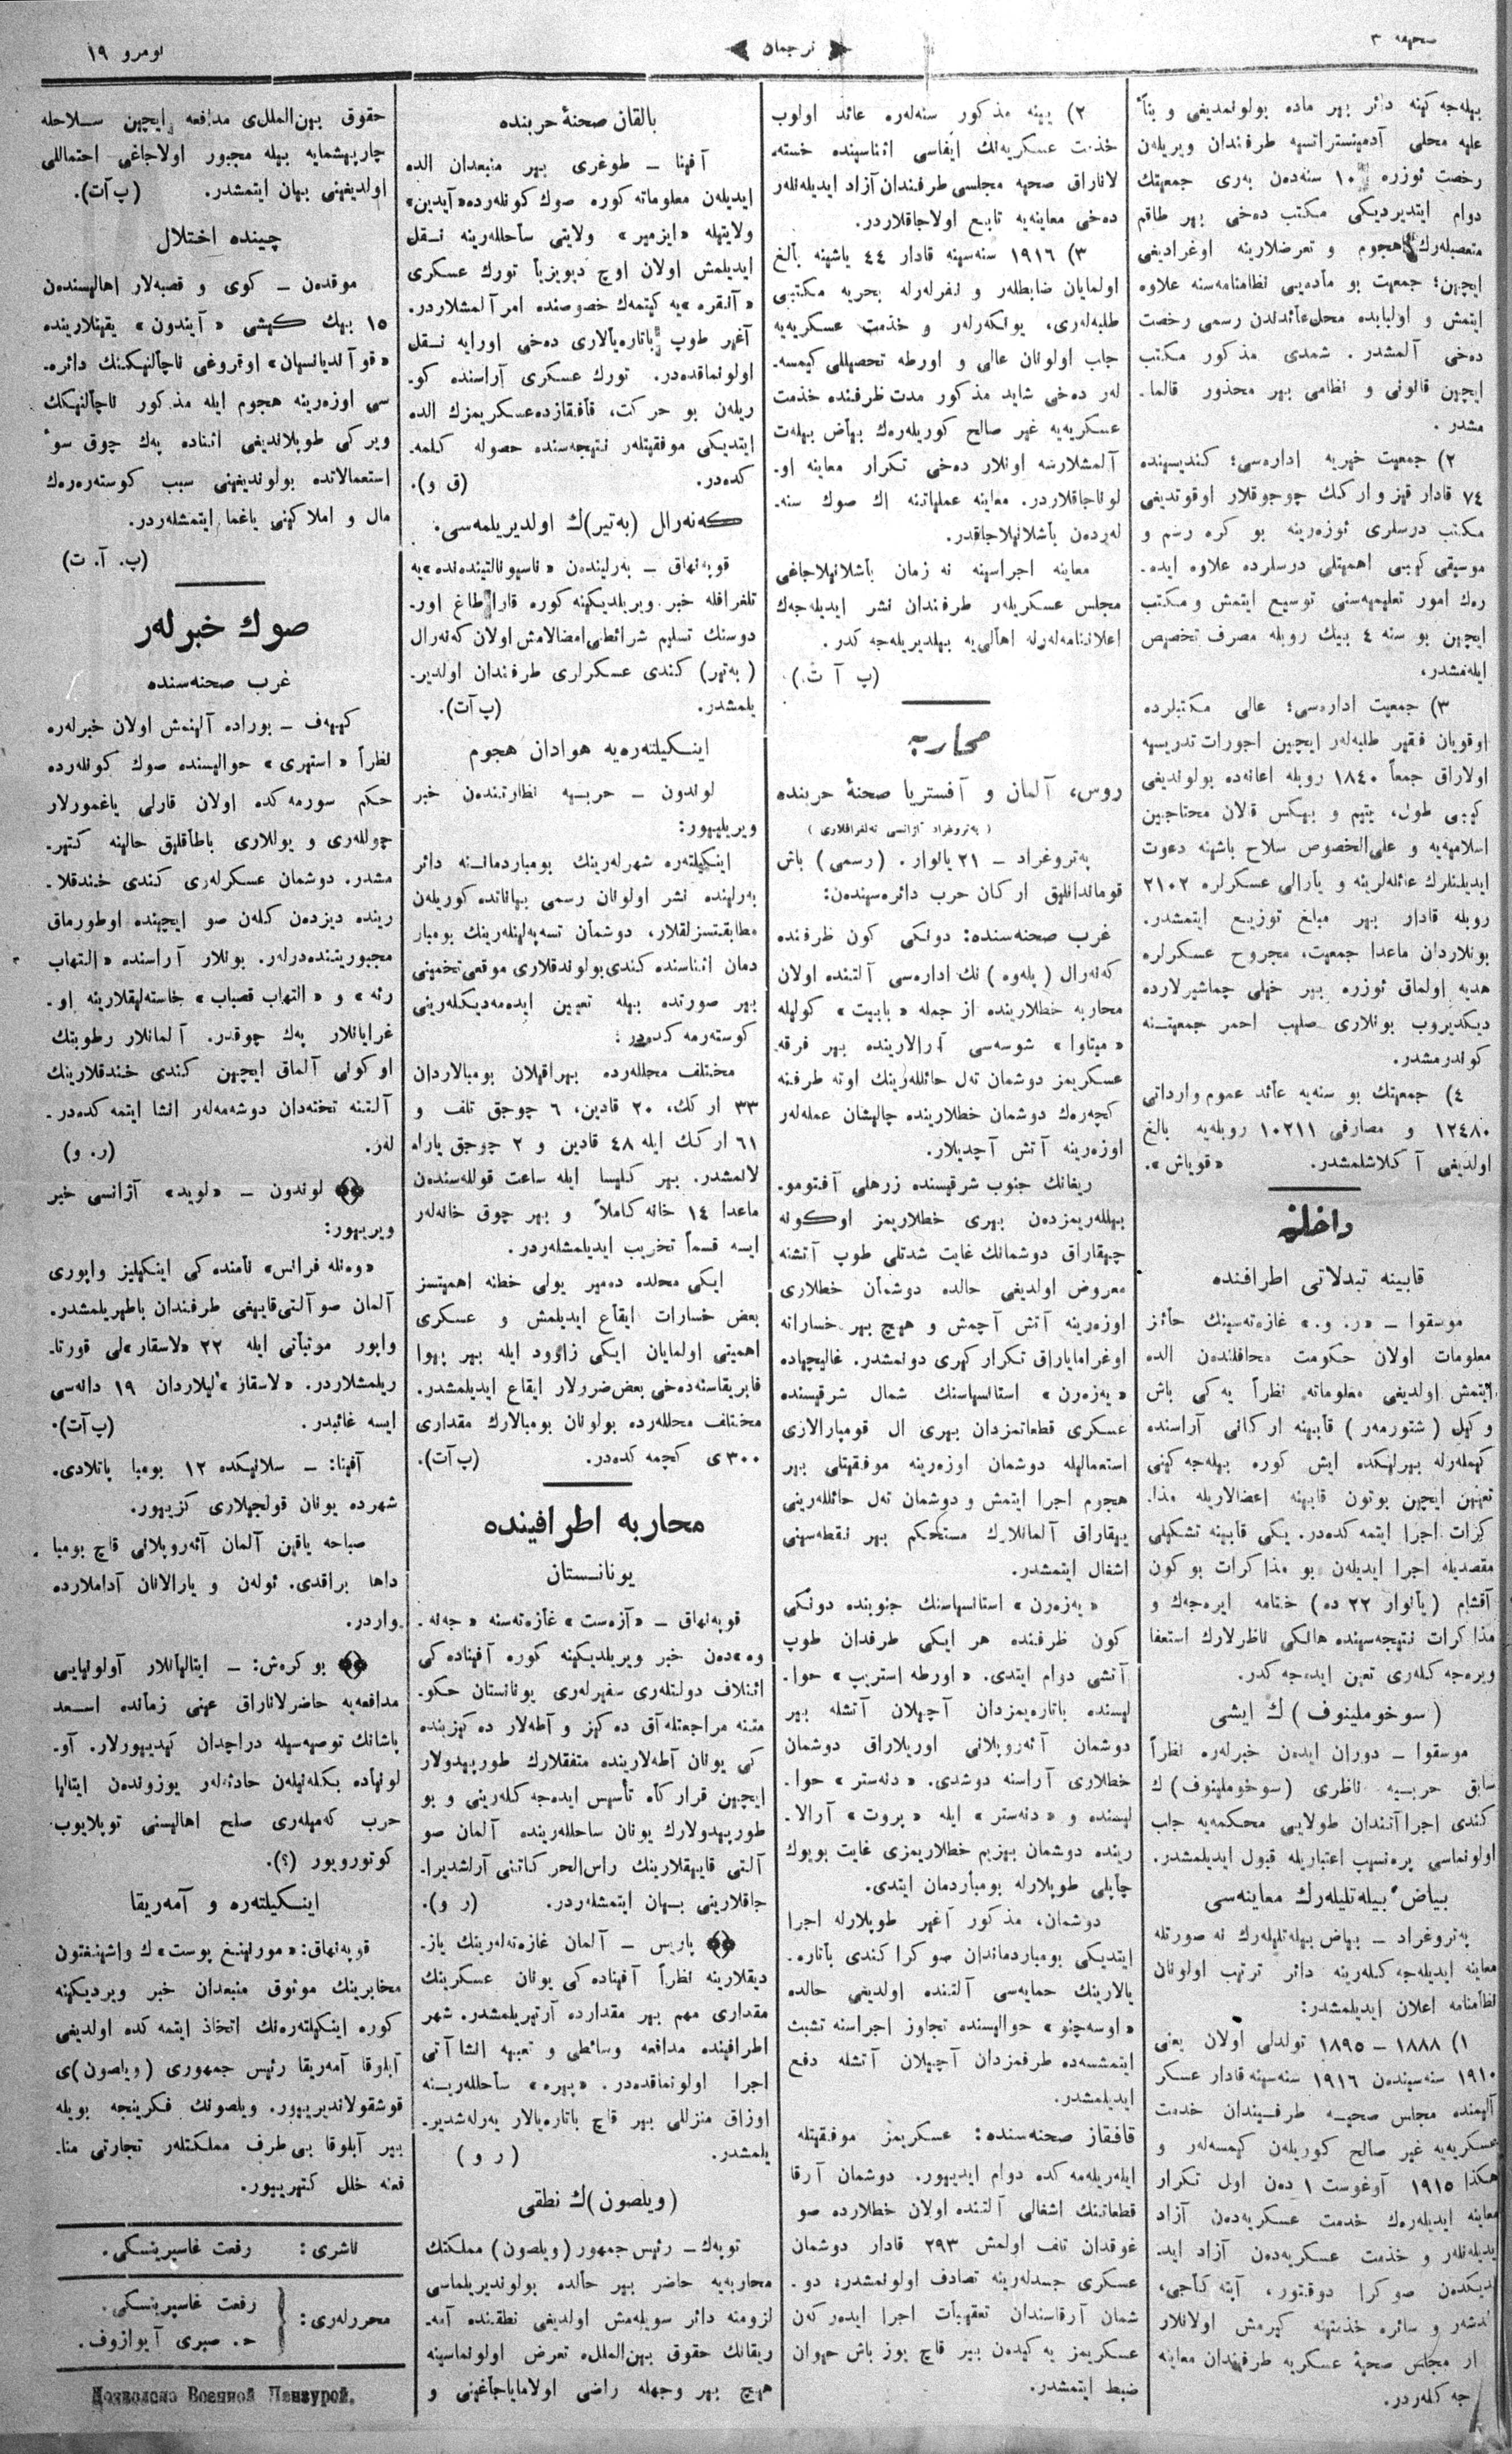 صحیفه ۳
ترجمان
نومرو ۱۹
بیله‌جه كینه دائر بیر ماده بولونمدیغی و بنأ
علیه محلی آدمینستراتسیه طرفندان ویریله‌ن
رخصت ئوزره ۱۰ سنه‌دن به‌ری جمعیتك
دوام ایتدیردیكی مكتب ده‌خی بیر طاقم
متعصبله‌رك هجوم و تعرضلارینه اوغرادیغی
ایچین؛ جمعیت بو مأده‌یی نظامنامه‌سنه علاوه
ایتمش و اولبابده محل عائدندن رسمی رخصت
ده‌خی آلمشدر. شمدی مذكور مكتب
ایچین قانونی و نظامی بیر محذور قالما-
مشدر.
۲) جمعیت خیریه اداره‌سی؛ كندیسینده
۷٤ قادار قیز و اركك چوجوقلار اوقوتدیغی
مكتب درسلری ئوزه‌رینه بو كره رسم و
موسیقی كیبی اهمیتلی درسلرده علاوه ایده-
ره‌ك امور تعلیمیه‌سنی توسیع ایتمش و مكتب
ایچین بو سنه ٤ بیڭ روبله مصرف تخصیص
ایله‌مشدر.
۳) جمعیت اداره‌سی؛ عالی مكتبلرده
اوقویان فقیر طلبه‌لەر ایچین اجورات تدریسیه
اولاراق جمعاً ۱۸٤۰ روبله اعانه‌ده بولوندیغی
كیبی طول، یتیم و بیكس قالان محتاجین
اسلامیه‌یه و علی‌الخصوص سلاح باشنه دعوت
ایدیلنلرك عائله‌لرینه و یارالی عسكرلره ۲۱۰۲
روبله قادار بیر مبلغ توزیع ایتمشدر.
بونلاردان ماعدا جمعیت، مجروح عسكرلره
هدیه اولماق ئوزره بیر خیلی چماشیرلارده
دیكدیروب بونلاری صلیب احمر جمعیتنه
كوندرمشدر.
٤) جمعیتك بو سنه‌یه عائد عموم وارداتی
۱۲٤۸۰ و مصارفی ۱۰۲۱۱ روبله‌یه بالغ
اولدیغی آكلاشلمشدر. «قویاش».
داخلیه
قابینه تبدلاتی اطرافنده
موسقوا — «ر. و.» غازه‌ته‌سینك حائز
معلومات اولان حكومت محافلندن الده
ایتمش اولدیغی معلوماته نظراً یه‌كی باش
وكیل (شتورمه‌ر) قابینه اركانی آراسنده
كیملەرله بیرلیكده ایش كوره بیله‌جه كینی
تعیین ایچین بوتون قابینه اعضالاریله مذا-
كرات اجرا ایتمه كده‌در. یكی قابینه تشكیلی
مقصدیله اجرا ایدیله‌ن بو مذاكرات بو كون
آقشام (یانوار ۲۲ ده) ختامه ایره‌جه‌ك و
مذاكرات نتیجه‌سینده هانكی ناظرلارك استعفا
ویره‌جه كله‌ری تعین ایده‌جه كدر.
(سوخوملینوف) ك ایشی
موسقوا — دوران ایده‌ن خبرله‌ره نظراً
سابق حربیه ناظری (سوخوملینوف) ك
كندی اجراآتندان طولایی محكمه‌یه جلب
اولونماسی پره‌نسیپ اعتباریله قبول ایدیلمشدر.
بیاض بیله‌تلیله‌رك معاینه‌سی
پەتروغراد — بیاض بیله‌تلیله‌رك نه صورتله
معاینه ایدیله‌جه كله‌رینه دائر ترتیب اولونان
نظامنامه اعلان ایدیلمشدر:
۱) ۱۸۸۸ — ۱۸۹۵ تولدلی اولان یعنی
۱۹۱۰ سنه‌سیندەن ۱۹۱٦ سنه‌سینه قادار عسكر
آلیمنده مجلس صحیه طرفیندان خدمت
عسكریه‌یه غیر صالح كوریله‌ن كیمسه‌لەر و
هكذا ۱۹۱۵ آوغوست ۱ دەن اول تكرار
معاینه ایدیله‌ره‌ك خدمت عسكریه‌دەن آزاد
ایدیلەنلەر و خذمت عسكریه‌دەن آزاد اید-
یدیكدەن صوكرا دوقتور،
و سائره خذمتینه كیرمش اولانلار
مجلس صحیهٔ عسكریه طرفیندان معاینه
جه كله‌ردر.
۲) یینه مذكور سنه‌لەره عائد اولوب
خذمت عسكریه‌نك ایفاسی اثناسینده خسته-
لاناراق صحیه مجلسی طرفندان آزاد ایدیله‌نله‌ر
ده‌خی معاینه‌یه تابع اولاجاقلاردر.
۳) ۱۹۱٦ سنه‌سینه قادار ٤٤ یاشینه بالغ
اولمایان ضابطلەر و نفرلەرله بحریه مكتبی
طلبه‌لەری، یونكەرلەر و خذمت عسكریه‌یه
جلب اولونان عالی و اورطه تحصیللی كیمسه-
لەر ده‌خی شاید مذكور مدت ظرفنده خذمت
عسكریه‌یه غیر صالح كوریله‌ره‌ك بیاض بیلەت
آلمشلارسه اونلار ده‌خی تكرار معاینه او-
لوناجاقلاردر. معاینه عملیاتنه اك صوك سنه-
لەردەن باشلانیلاجاقدر.
معاینه اجراسینه نه زمان باشلانیلاجاغی
مجلس عسكریله‌ر طرفندان نشر ایدیله‌جه‌ك
اعلاننامه‌لەرله اهالی‌یه بیلدیریله‌جه كدر.
(پ آ ت.)
محاربه
روس، آلمان و آفستریا صحنهٔ حربنده
(پەتروغراد آژانسی تەلغرافلاری)
پەتروغراد — ۲۱ یانوار. (رسمی) باش
قوماندانلیق اركان حرب دائره‌سیندەن:
غرب صحنه‌سنده: دونكی كون ظرفنده
كه‌نه‌رال (پله‌وه) نك اداره‌سی آلتنده اولان
محاربه خطلارینده از جمله «بابیت» كولیله
«میتاوا» شوسه‌سی آرالارینده بیر فرقه
عسكریمز دوشمان تەل حائللەرینك اوته طرفنه
كچەرەك دوشمان خطلارینده چالیشان عمله‌لەر
اوزه‌رینه آتش آچدیلار.
ریغانك جنوب شرقیسنده زرهلی آفتومو-
بیللەریمزدەن بیری خطلاریمز اوكونه
چیقاراق دوشمانك غایت شدتلی طوپ آتشنه
معروض اولدیغی حالده دوشمان خطلاری
اوزه‌رینه آتش آچمش و هیچ بیر خسارانه
اوغرامایاراق تكرار كیری دونمشدر. غالیچیاده
«یەزەرن» استانسیاسنك شمال شرقیسنده
عسكری قطعاتمزدان بیری ال قومبارالاری
استعمالیله دوشمان اوزه‌رینه موفقیتلی بیر
هجوم اجرا ایتمش و دوشمان تەل حائللەرینی
ییقاراق آلمانلارك مستحكم بیر نقطه‌سینی
اشغال ایتمشدر.
«یەزەرن» استانسیاسنك جنوبنده دونكی
كون ظرفنده هر ایكی طرفدان طوپ
آتشی دوام ایتدی. «اورطه استریپ» حوا-
لیسنده باتاره‌یمزدان آچیلان آتشله بیر
دوشمان آئه‌روپلانی اوریلاراق دوشمان
خطلاری آراسنه دوشدی. «دنه‌ستر» حوا-
لیسنده و «دنه‌ستر» ایله «پروت» آرالا-
رینده دوشمان بیزیم خطلاریمزی غایت بویوك
چاپلی طوپلارله بومبأردمان ایتدی.
دوشمان، مذكور آغیر طوپلارله اجرا
ایتدیكی بومباردماندان صوكرا كندی باتاره-
یالارینك حمایه‌سی آلتنده اولدیغی حالده
«اوسەچنو» حوالیسنده تجاوز اجراسنه تشبث
ایتمشسه‌ده طرفمزدان آچیلان آتشله دفع
ایدیلمشدر.
قافقاز صحنه‌سنده: عسكریمز موفقیتله
ایلەریلەمه كده دوام ایدییور. دوشمان آرقا
قطعاتنك اشغالی آلتنده اولان خطلارده صو
غوقدان تلف اولمش ۲۹۳ قادار دوشمان
عسكری جسدلەرینه تصادف اولونمشدر. دو-
شمان آرقاسندان تعقیبات اجرا ایدەركەن
عسكریمز یه كیدەن بیر قاچ یوز باش حیوان
ضبط ایتمشدر.
بالقان صحنهٔ حربنده
آفینا — طوغری بیر منبعدان الده
ایدیله‌ن معلوماته كوره صوك كونلەرده «آیدین»
ولایتیله «ایزمیر» ولایتی سأحللەرینه نقل
ایدیلمش اولان اوچ دیویزیأ تورك عسكری
«آنقره» یه كیتمەك خصوصنده امر آلمشلاردر.
آغیر طوپ باتاره‌یالاری ده‌خی اورایه نقل
اولونماقده‌در. تورك عسكری آراسنده كو-
ریله‌ن بو حركت، قافقازده عسكریمزك الده
ایتدیكی موفقیتلەر نتیجه‌سنده حصوله كلمه-
كده‌در. (ق و).
كه‌نه‌رال (به‌تیر) ك اولدیریلمه‌سی.
قوپه‌نهاق — به‌رلیندەن «ناسیونالتیدەنده» یه
تلغرافله خبر ویریلدیكینه كوره قاراطاغ اور-
دوسنك تسلیم شرائطی امضالامش اولان كه‌نه‌رال
(به‌تیر) كندی عسكرلری طرفندان اولدیر-
یلمشدر. (پ آت).
اینكیلته‌ره‌یه هوادان هجوم
لوندون — حربیه نظارتندەن خبر
ویریلییور:
اینكیلته‌ره شهرلەرینك بومباردمانه دائر
به‌رلینده نشر اولونان رسمی بیاناتده كوریله‌ن
مطابقتسزلقلار، دوشمان تسه‌پەلینلەرینك بومبار
دمان اثناسنده كندی بولوندقلاری موقعی تخمینی
بیر صورتده بیله تعیین ایدەمەدیكلەرینی
كوستەرمه كدەدر:
مختلف محللەرده بیراقیلان بومبالاردان
۳۳ اركك، ۲۰ قادین، ٦ چوجق تلف و
٦۱ اركك ایله ٤۸ قادین و ۲ چوجق یارا-
لانمشدر. بیر كلیسا ایله ساعت قوللەسندەن
ماعدا ۱٤ خانه كاملاً و بیر چوق خانه‌لەر
ایسه قسماً تخریب ایدیلمشلەردر.
ایكی محلده دەمیر یولی خطنه اهمیتسز
بعض خسارات ایقاع ایدیلمش و عسكری
اهمیتی اولمایان ایكی زاوود ایله بیر بیوا
فابریقاسنه‌ده‌خی بعض ضررلار ایقاع ایدیلمشدر.
مختلف محللەرده بولونان بومبالارك مقداری
۳۰۰ ی كچمه كده‌در. (پ آت).
محاربه اطرافینده
یونانستان
قوپه‌نهاق — «آزەست» غازه‌ته‌سنه «جەنە-
وه» دەن خبر ویریلدیكینه كوره آفیناده كی
ائتلاف دولتلەری سفیرلەری یونانستان حكو-
متنه مراجعتله آق دە كیز و آطه‌لار دە كیزینده
كی یونان آطه‌لارینده متفقلارك طورپیدولار
ایچین قرار كاه تأسیس ایدەجه كلەرینی و بو
طورپیدولارك یونان ساحللەرینده آلمان صو
آلتی قاییقلارینك راس‌الحركاتنی آرلشدیرا-
جاقلارینی بیان ایتمشلەردر. (ر و).
پاریس — آلمان غازه‌ته‌لەرینك یاز-
دیقلارینه نظراً آفیناده كی یونان عسكرینك
مقداری مهم بیر مقدارده آرتیریلمشدر. شهر
اطرافینده مدافعه وسائطی و تعبیه انشاآتی
اجرا اولونماقده‌در. «پیره» سأحللەرینه
اوزاق منزللی بیر قاچ باتاره‌یالار یەرلەشدیر-
یلمشدر. (ر و)
(ویلصون) ك نطقی
توپه‌ك — رئیس جمهور (ویلصون) مملكتك
محاربه‌یه حاضر بیر حالده بولوندیریلماسی
لزومنه دائر سویله‌مش اولدیغی نطقنده آمه-
ریقانك حقوق بین‌الملله تعرض اولونماسینه
هیچ بیر وجهله راضی اولامایاجأغینی و
حقوق بین‌المللی مدافعه ایچین سلاحله
چارپیشمایه بیله مجبور اولاجاغی احتماللی
اولدیغینی بیان ایتمشدر. (پ آت).
چینده اختلال
موقدەن — كوی و قصبه‌لار اهالیسندەن
۱۵ بیڭ كیشی «آیندون» یقینلارینده
«قوآندیانسیان» اوقروغی ناچالنیكینك دائره-
سی اوزه‌رینه هجوم ایله مذكور ناچالنیكك
ویركی طوپلاندیغی اثناده پەك چوق سوٴ
استعمالاتده بولوندیغینی سبب كوستەرەرەك
مال و املاكینی یاغما ایتمشلەردر.
(پ. آ. ت)
صوك خبرلەر
غرب صحنه‌سنده
كییەف — بوراده آلنمش اولان خبرلەره
نظراً «استیری» حوالیسنده صوك كونلەرده
حكم سورمه كده اولان قارلی یاغمورلار
چوللەری و یوللاری باطاقلیق حالینه كتیر-
مشدر. دوشمان عسكرلەری كندی خندقلا-
رینده دیزدەن كلەن صو ایچینده اوطورماق
مجبوریتنده‌درلەر. بونلار آراسنده «التهاب
رئه» و «التهاب قصبات» خاسته‌لیقلارینه او-
غرایانلار پەك چوقدر. آلمانلار رطوبتك
اوكونی آلماق ایچین كندی خندقلارینك
آلتنه تختەدان دوشەمەلەر انشا ایتمه كده‌در-
لەر. (ر. و)
لوندون — «لوید» آژانسی خبر
ویرییور:
«وەنله فرانس» نامنده كی اینكیلیز واپوری
آلمان صو آلتی قاییغی طرفندان باطیریلمشدر.
واپور مرتبأتی ایله ۲۲ «لاسقار» لی قورتا-
ریلمشلاردر. «لاسقاز» لیلاردان ۱۹ دانه‌سی
ایسه غائبدر. (پ آت).
آفینا: — سلانیكده ۱۲ بومبا پاتلادی.
شهرده یونان قولجیلاری كزییور.
صباحه یاقین آلمان آئه‌روپلانی قاچ بومبا
داها براقدی. ئولەن و یارالانان آداملارده
واردر.
بوكرەش: — ایتالیانلار آولونیایی
مدافعه‌یه حاضرلاناراق عینی زمانده اسعد
پاشانك توصیه‌سیله دراچدان كیدییورلار. آو-
لونیاده بكله‌نیله‌ن حادثه‌لەر یوزوندەن ایتالیا
حرب كه‌میله‌ری صلح اهالیسنی توپلایوب
كوتورویور (؟).
اینكیلته‌ره و آمه‌ریقا
قوپه‌نهاق: «مورلینغ پوست» ك واشینغتون
مخابرینك موثوق منبعدان خبر ویردیكینه
كوره اینكیلته‌ره‌نك اتخاذ ایتمه كده اولدیغی
آبلوقا آمه‌ریقا رئیس جمهوری (ویلصون) ی
قوشقولاندیرییور. ویلصونك فكرینجه بویله
بیر آبلوقا بی طرف مملكتلەر تجارتی منا-
فعنه خلل كتیرییور.
ناشری: رفعت غاسپرینسكی.
محررلەری: رفعت غاسپرینسكی.
ح. صبری آیوازوف.
Дозволено Военной Цензурой.